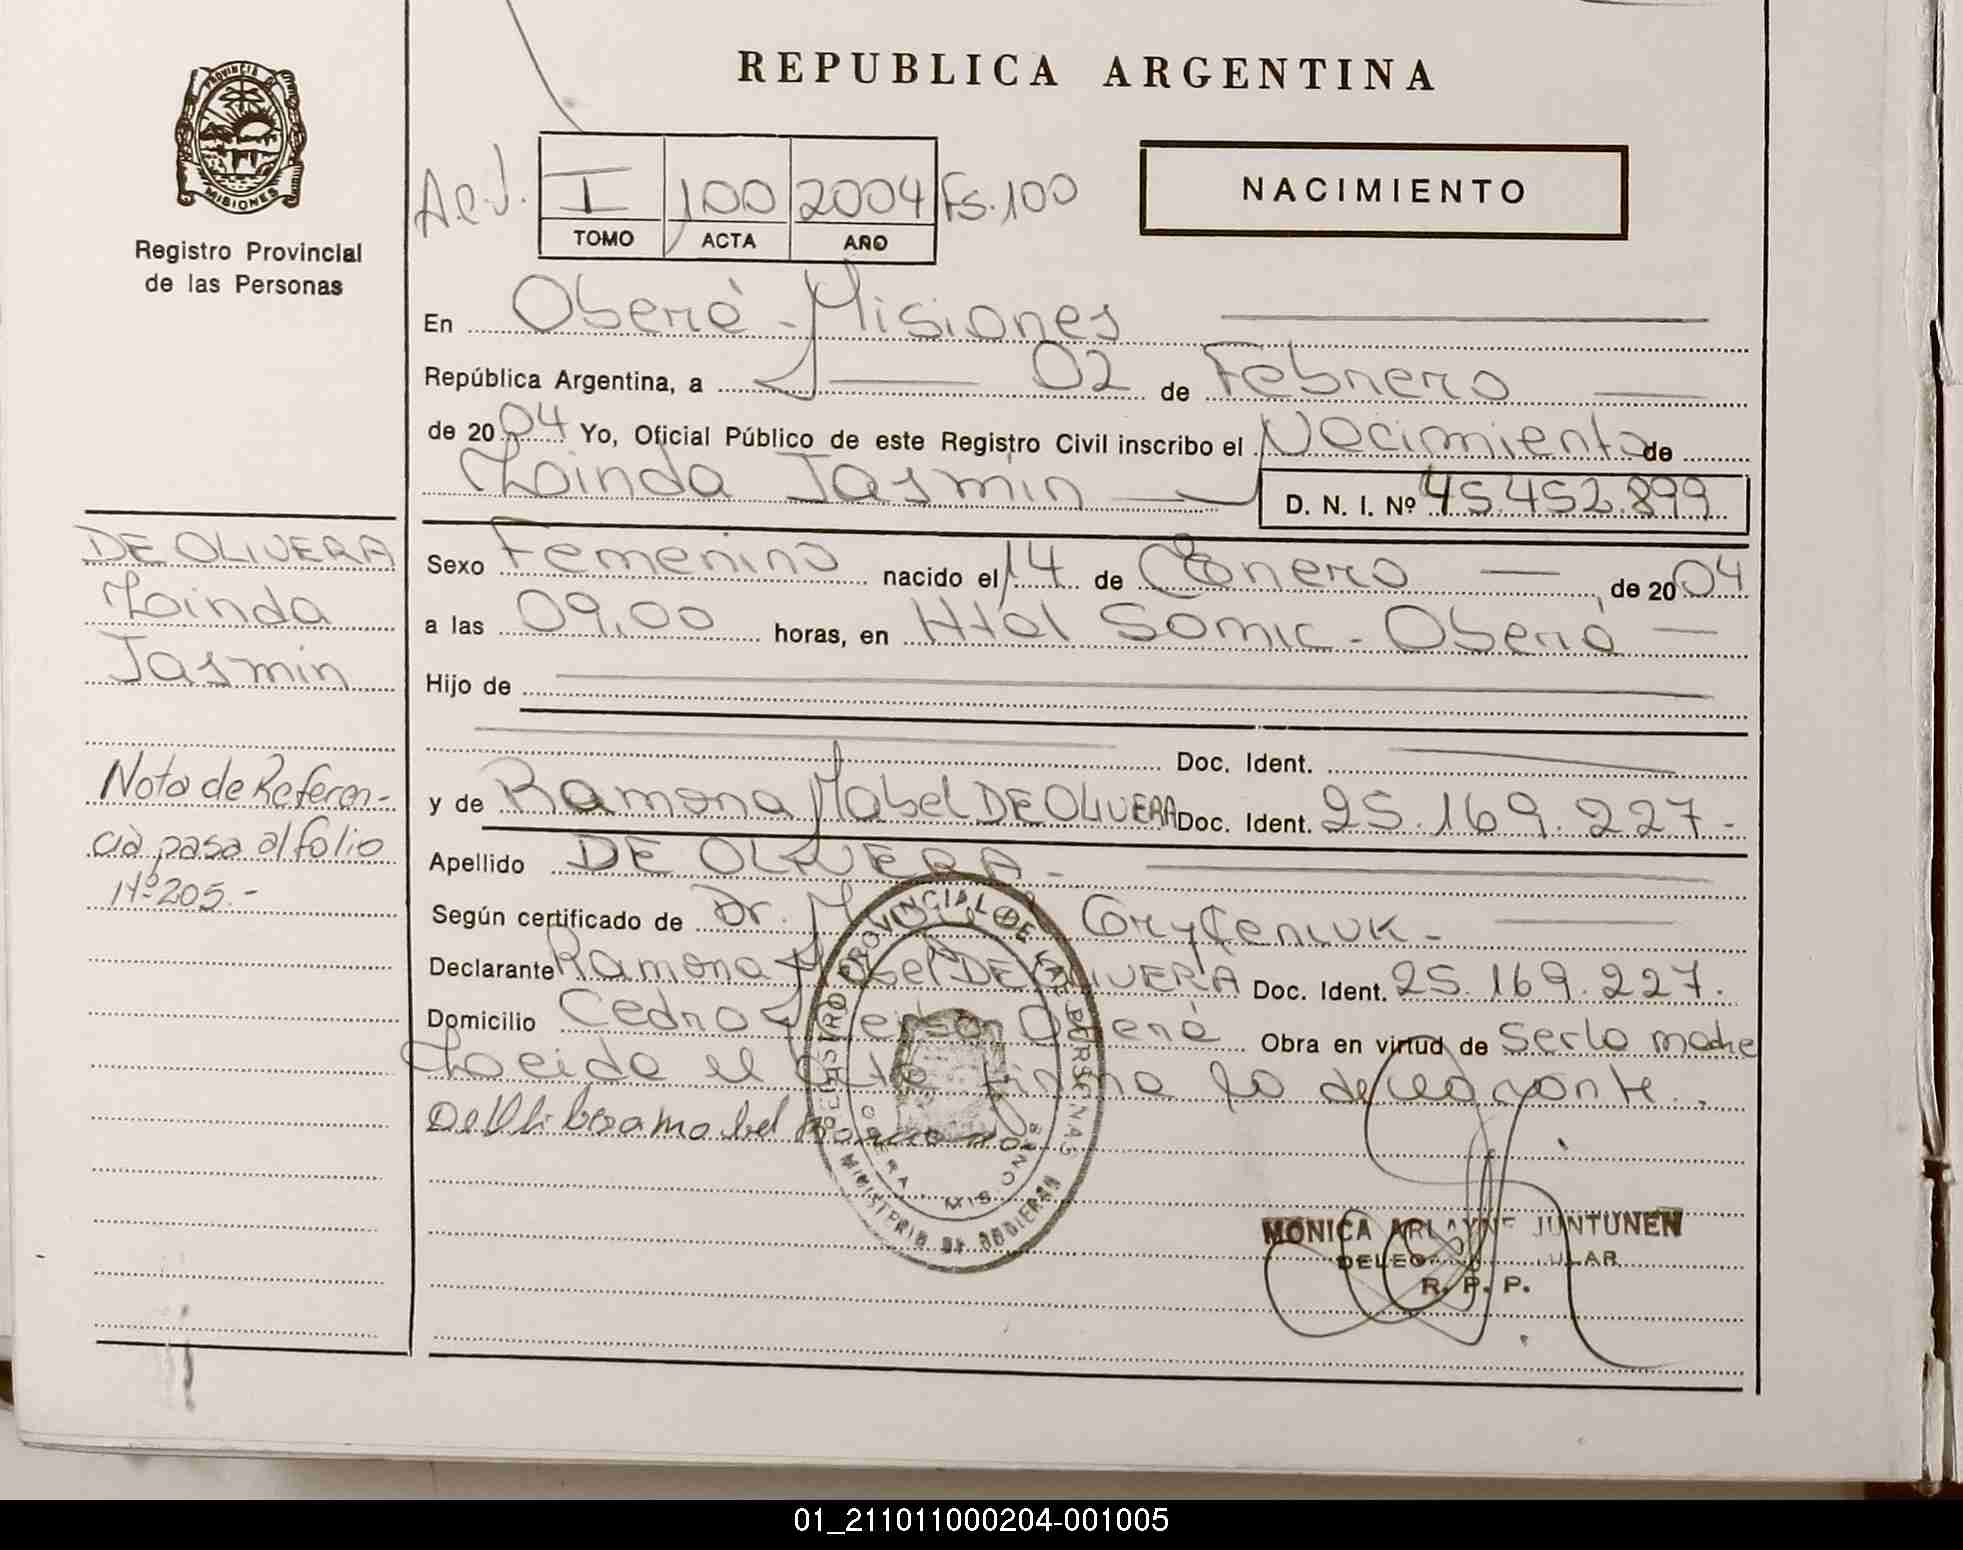 REPUBLICA ARGENTINA
PROVINCIA DE
MISIONES
Registro Provincial
de las Personas
I 100 2004 Fs. 100
TOMO ACTA AÑO
NACIMIENTO
En Oberá - Misiones
República Argentina, a 02 de Febrero
de 2004 Yo, Oficial Público de este Registro Civil inscribo el Nacimiento de
Lainda Jasmin D. N. I. Nº 45.452.899
DE OLIVERA
Lainda
Jasmin
Nota de Referen-
cia pasa al folio
Nº 205.-
Sexo Femenino nacido el 14 de Enero de 2004
a las 09,00 horas, en Htal Samic - Oberá
Hijo de
Doc. Ident.
y de Ramona Mabel DE OLIVERA Doc. Ident. 25.169.227.-
Apellido DE OLIVERA.-
Según certificado de Dr.
Declarante Ramona Mabel DE OLIVERA Doc. Ident. 25.169.227.
Domicilio Cedro Oberá Obra en virtud de ser la madre
Leida el acta firma la declarante.
REGISTRO PROVINCIAL DE LAS PERSONAS
MINISTERIO DE GOBIERNO
OBERA - MISIONES
MONICA ARLAYNE JUNTUNEN
DELEGADA TITULAR
R. P. P.
01_211011000204-001005